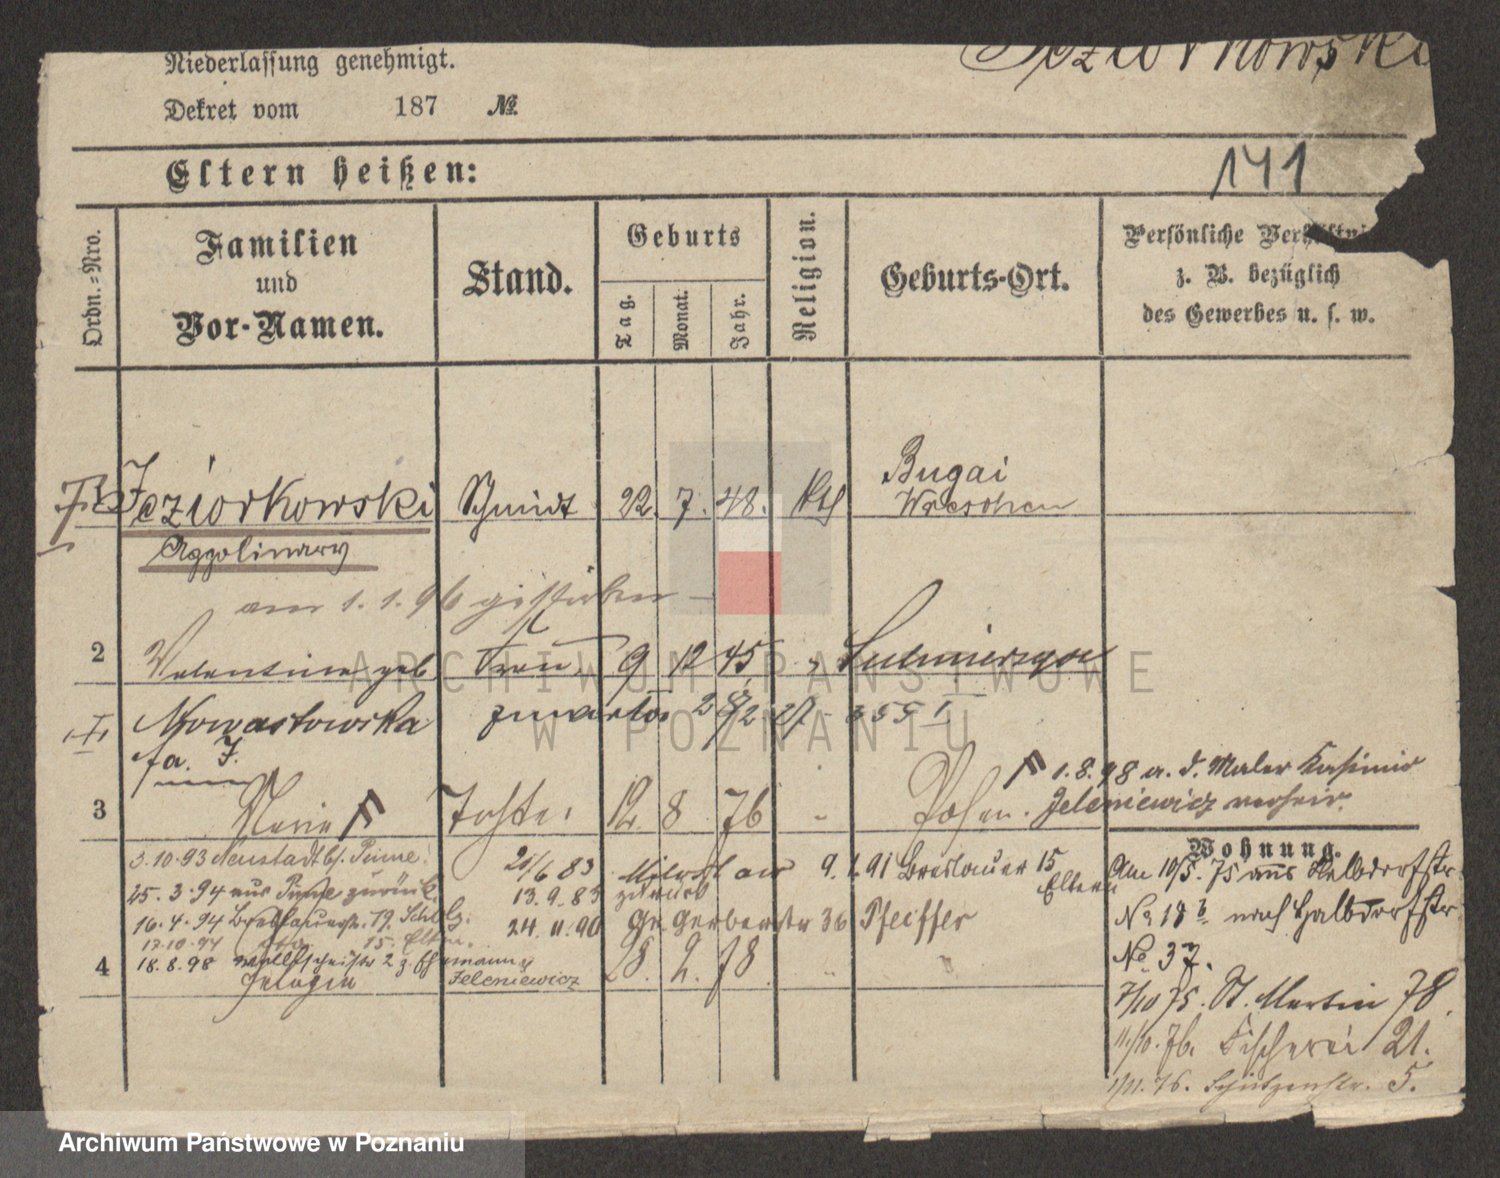 Jeziorkowski
Niederlassung genehmigt.
Dekret vom 187 No.
141
Eltern heißen:
Ordn.-Nro.
Familien
und
Vor-Namen.
Stand.
Geburts
Tag.
Monat.
Jahr.
Religion.
Geburts-Ort.
Persönliche
z. B. bezüglich
des Gewerbes u. s. w.
Jeziorkowski Schmidt 22. 7. 48. kth Bugai
Wreschen
Appolinary
am 1. 1. 96 gestorben
2 Valentine geb Frau 9 12 45
Nowastowska
fa. J.
1. 8. 98 a. d. Maler Kasimir
Jeleniewicz verheir.
3 Marie Tochter 12. 8 76 " Posen.
Wohnung.
3.10.93 Neustadt b/. Pinne.
21/6 83 Miloslaw 9. 1. 91 Breslauer 15
Eltern
25. 3. 94 aus Pinne zurück
13. 9. 83 zurück
16. 4. 94 Breslauerstr. 19.
24. 11. 90 Gr. Gerberstr 36 Pfeiffer
17.10.94 15. Eltern.
18. 8. 98 Jeleniewicz
4 Pelagia 28. 2. 78 "
Am 10/5. 75 aus Halbdorfstr
No 18 b nach Halbdorfstr
No 37.
7/10 75. St. Martin 78.
11/10. 76. Fischerei 21.
1/11. 76. Schützenstr. 5.
ARCHIWUM PAŃSTWOWE
W POZNANIU
Archiwum Państwowe w Poznaniu